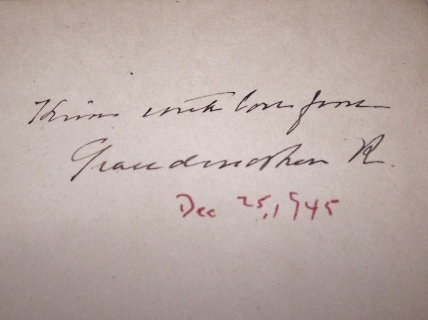 with love from
Grandmother R.
Dec 25, 1945